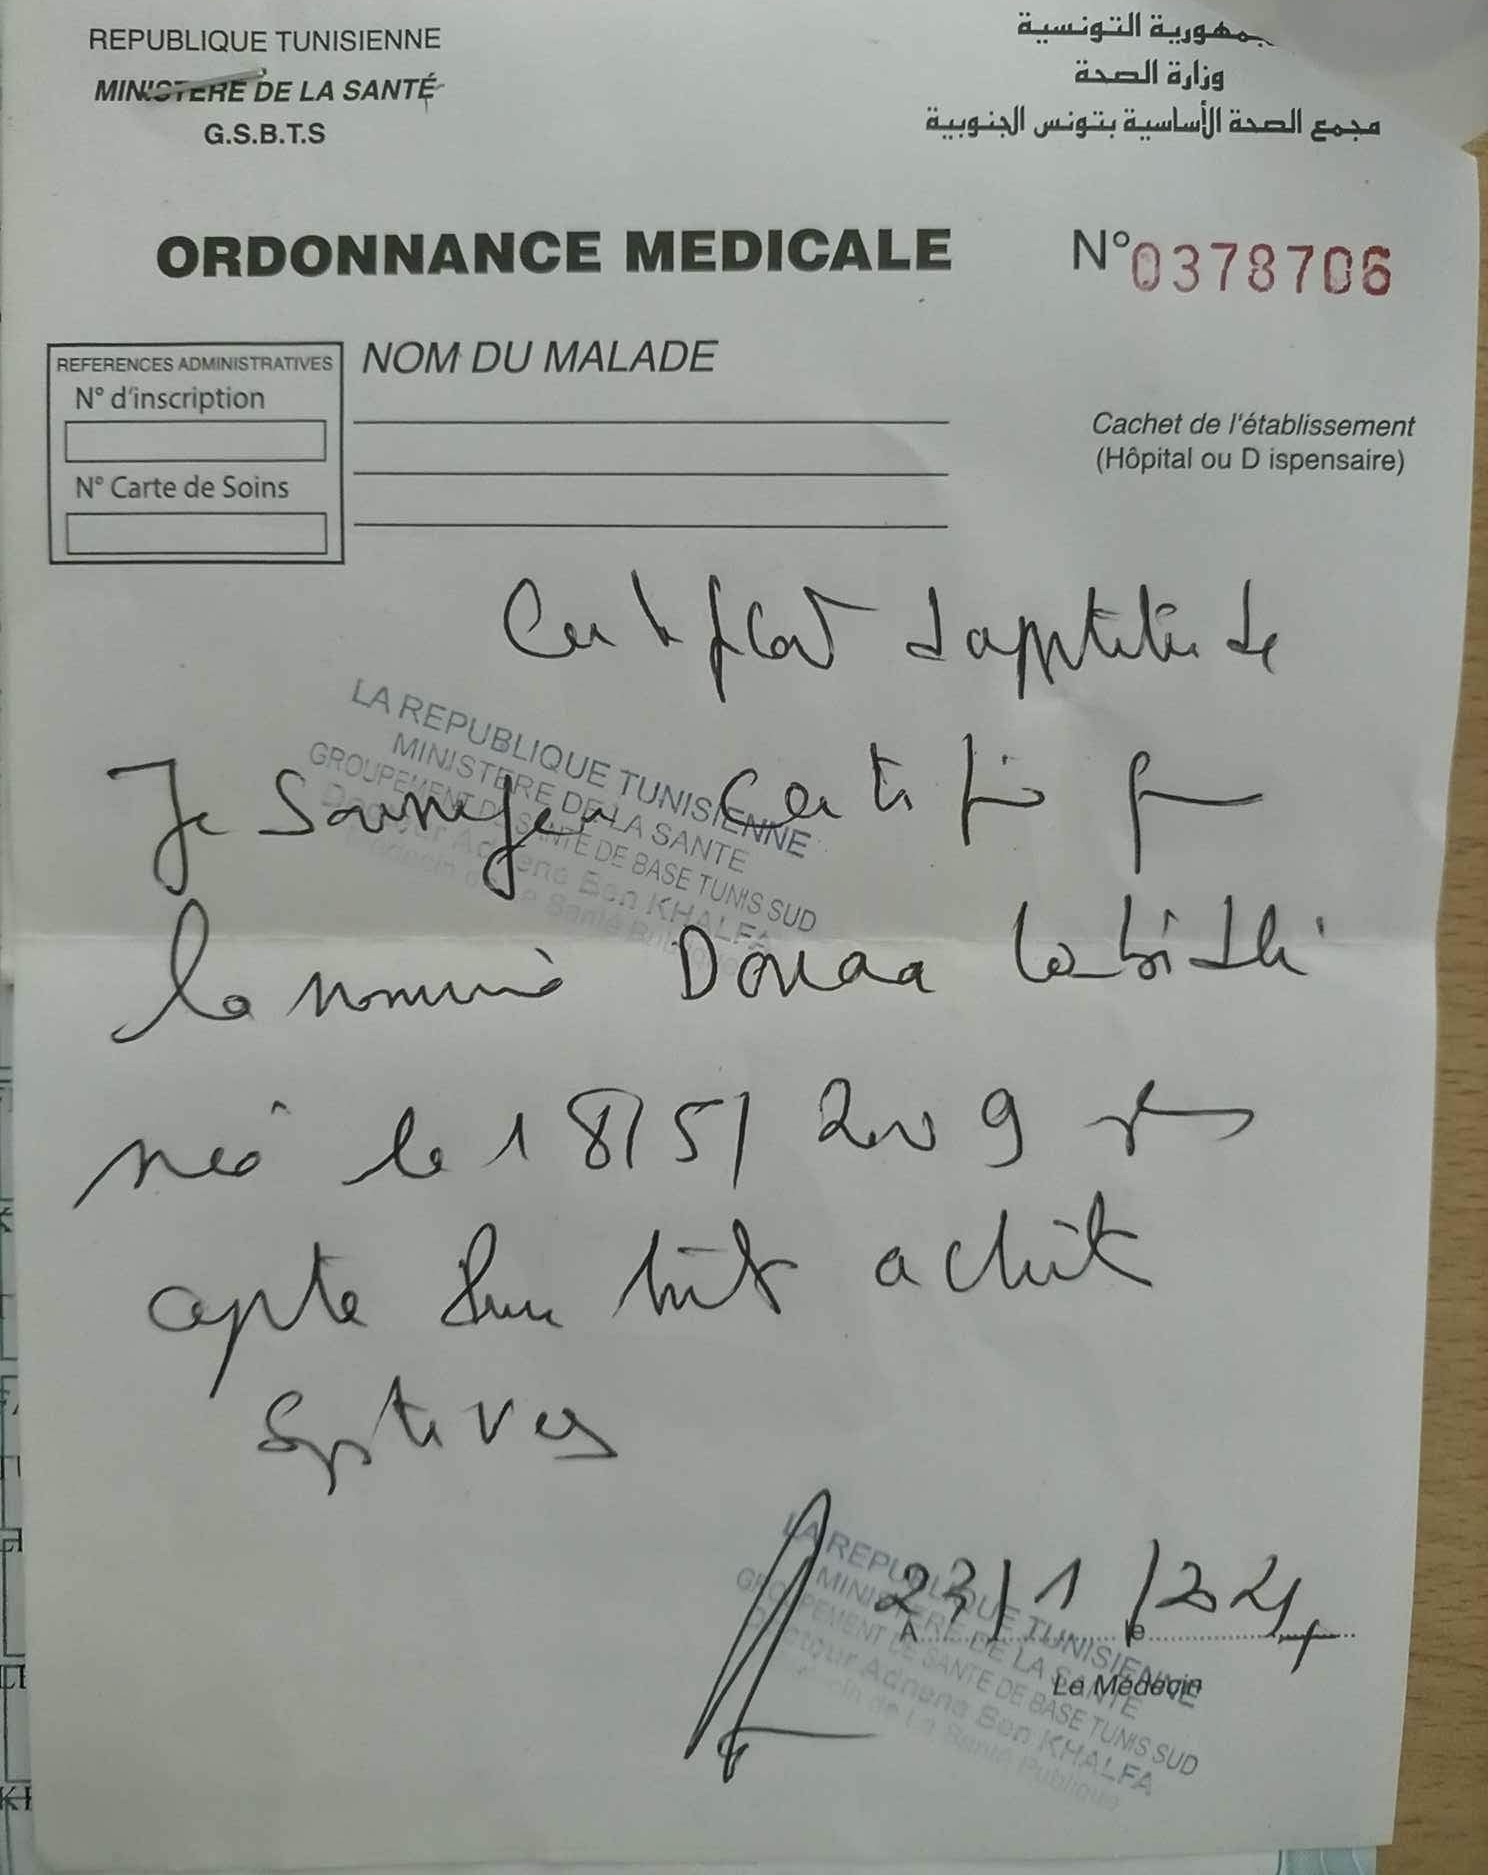 REPUBLIQUE TUNISIENNE
MINISTERE DE LA SANTÉ
G.S.B.T.S
جمهورية التونسية
وزارة الصحة
مجمع الصحة الأساسية بتونس الجنوبية
ORDONNANCE MEDICALE
N° 0378706
REFERENCES ADMINISTRATIVES
N° d'inscription
N° Carte de Soins
NOM DU MALADE
Cachet de l'établissement
(Hôpital ou D ispensaire)
Certificat d'aptitude
LA REPUBLIQUE TUNISIENNE
MINISTERE DE LA SANTE
GROUPEMENT DE SANTE DE BASE TUNIS SUD
Docteur Adnene Ben KHALFA
Médecin de La Santé Publique
Je soussigné certifie que
le nommé Douaa
né le 18/5/2009 est
apte pour toute activité
sportives
23/1/2024
A le
Le Médecin
LA REPUBLIQUE TUNISIENNE
MINISTERE DE LA SANTE
GROUPEMENT DE SANTE DE BASE TUNIS SUD
Docteur Adnene Ben KHALFA
Médecin de La Santé Publique